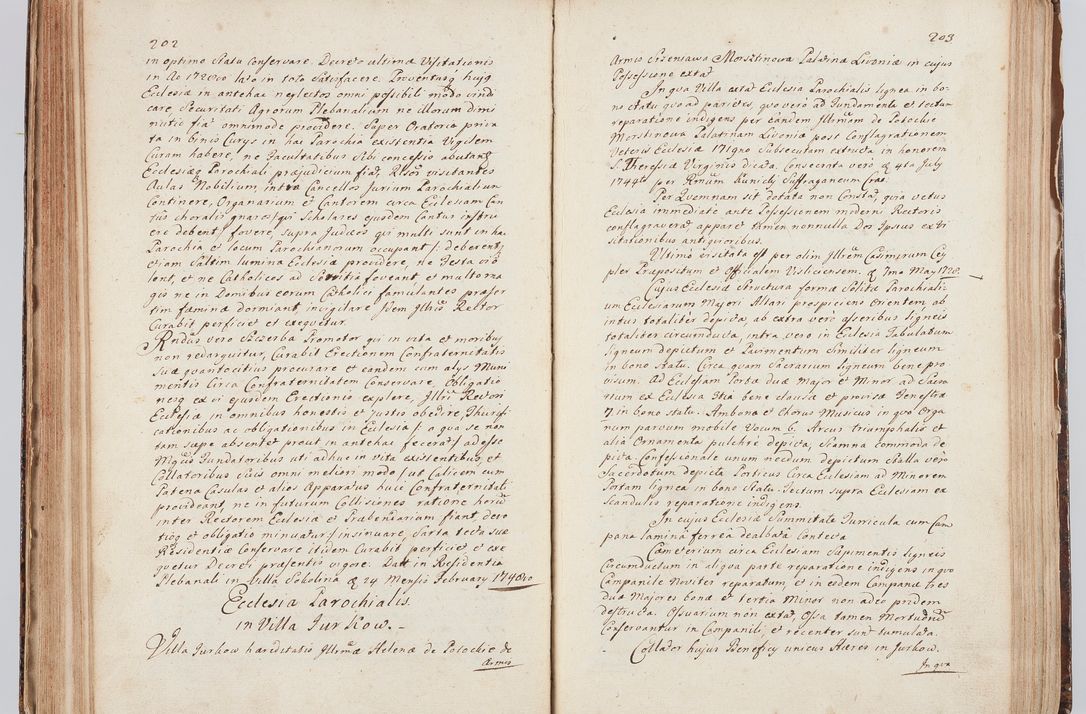 202
in optimo Statu Conservare. Decreto ultimæ Visitationis
in Ao 1728vo lato in toto Satisfacere. Proventusq hujg
Ecclesiæ in antehac neglectos omni possibili modo vindi
care Securitati Agrorum Plebanalium ne illorum dimi
nutio fiat omnimode providere. Super Oratoria priva
ta in binis Curys in hac Parochia existentia Vigilem
Curam habere, ne facultatibus Sibi concessis abutantr
Ecclesiæq Parochiali præjudicium fiat. Rlsos visitantes
Aulas Nobilium, intra Cancellos Jurium Parochialium
Continere, Organarium et Cantorem circa Ecclesiam Can
tus choralis gnaros /:qui Scholares ejusdem Cantus instru
ere debent:/ fovere, supra Judæos qui multi sunt in hac
Parochia et locum Parochianorum occupant /: deberent
etiam Saltim lumina Ecclesiæ providere, ne festa vio
lent, et ne Catholicos ad Servitia foveant, et multo ma
gis ne in Domibus eorum Catholici famulantes præser
tim fæminæ dormiant, invigilare Idem Illris Rector
Curabit perficiet et exequetur.
Rndus vero Paczerba Promotor qui in vita et moribus
non redarguitur, Curabit Erectionem Confraternitatis
Suæ quantocitius procurare et eandem cum alys Muni
mentis Circa Confraternitatem Conservare, Obligatio
nesq ex vi ejusdem Erectionis explere, Illri Rectori
Ecclesiæ in omnibus honestis et justis obedire, Thurifi
cationibus ac obligationibus in Ecclesia /: a qua se non
tam sæpe absentet prout in antehac fecerat:/ adesse
Mgcos Fundatoribus uti adhuc in vita existentibus et
Collatoribus Suis omni meliori modo /: ut Calicem cum
Patena Casulas et alios Apparatus huic Confraternitati
provideant, ne in futurum Collisiones ratione horum
inter Rectorem Ecclesiæ et Præbendarium fiant, devo
tioq et obligatio minuatur:/ insinuare, Sarta tecta suæ
Residentiæ Conservare itidem Curabit perficiet et exe
quetur Decreti præsentis vigore. Datt in Residentia
Plebanali in Villa Sokolina d 24 Mensis February 1748vo
Ecclesia Parochialis
in Villa Jurkow.
Villa Jurkow hæreditatio Illrmæ Helenæ de Potockie de
Armis
203
Armis Crzensawa Morsztinova Palatinæ Livoniæ in cujus
Possessione extat
In qva Villa extat Ecclesia Parochialis lignea in bo-
no statu quo ad parietes, quo vero ad Fundamenta et tectum
reparatione indigens per eandem Illrmam de Potockie
Morstinova Palatinam Livoniæ post Conflagrationem
Veteris Ecclesiæ 1719no Subsecutam extructa in honorem
S. Theresiæ Virginis dicata, Consecrata vero d 4ta July
1744to per Rmum Kunicki Suffraganeum Crac.
Per Quemnam sit dotata non Constat, quia vetus
Ecclesia immediate ante Possessionem moderni Rectoris
conflagraverat apparet tamen nonnulla Dos Ipsius ex vi
sitationibus antiquioribus.
Ultimo visitata est per olim Illrem Casimirum Cey
pler Præpositum et Officialem Visliciensem. d 7mo May 1728.
Cujus Ecclesiæ Structura formæ Solitæ Parochiali-
um Ecclesiarum Majori Altari prospiciens Orientem, ab
intus totaliter depicta, ab extra vero asseribus ligneis
totaliter circumducta, intra vero in Ecclesia Tabulatum
ligneum depictum et Pavimentum Similiter ligneum
in bono statu. Circa quam Sacrarium ligneum bene pro
visum. Ad Ecclesiam Portæ duæ Major et Minor, ad Sacra
rium ex Eclesia Itia bene clausa et provisa Fenestræ
7. in bono statu. Ambona et Chorus Musicus in quo Orga
num parvum mobile Vocum 6. Arcus triumphalis et
alia Ornamenta pulchre depicta, Scamna commoda de
picta. Confessionale unum necdum depictum Stalla vero
Sacerdotum depicta Porticus Circa Ecclesiam ad Minorem
Portam lignea in bono Statu. Tectum supra Ecclesiam ex
Scandulis reparatione indigens.
In cujus Ecclesiæ Summitate Turricula cum Cam
pana lamina ferrea dealbata Contecta
Cæmeterium circa Ecclesiam Sæpimentis ligneis
Circumductum in aliqua parte reparatione indigens in quo
Campanile Noviter reparatum et in eodem Campanæ tres
duæ Majores bonæ et tertia Minor non adeo pridem
destructa. Ossuarium non extat, Ossa tamen Mortuorum
Conservantur in Campanili, et recenter sunt tumulata.
Collator hujus Beneficy unicus Hæres in Jurkow.
In qva